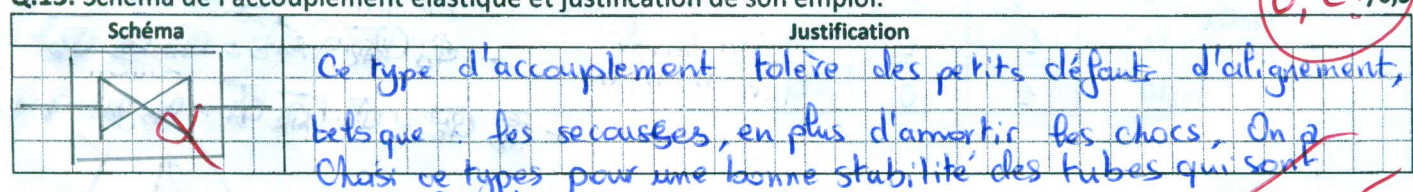 Schéma de l'accouplement élastique et justification de son emploi.
Schéma
Justification
Ce type d'accouplement tolère des petits défauts d'alignement,
tels que les secousses, en plus d'amortir les chocs. On a
Choisi ce types pour une bonne stabilité des tubes qui sont